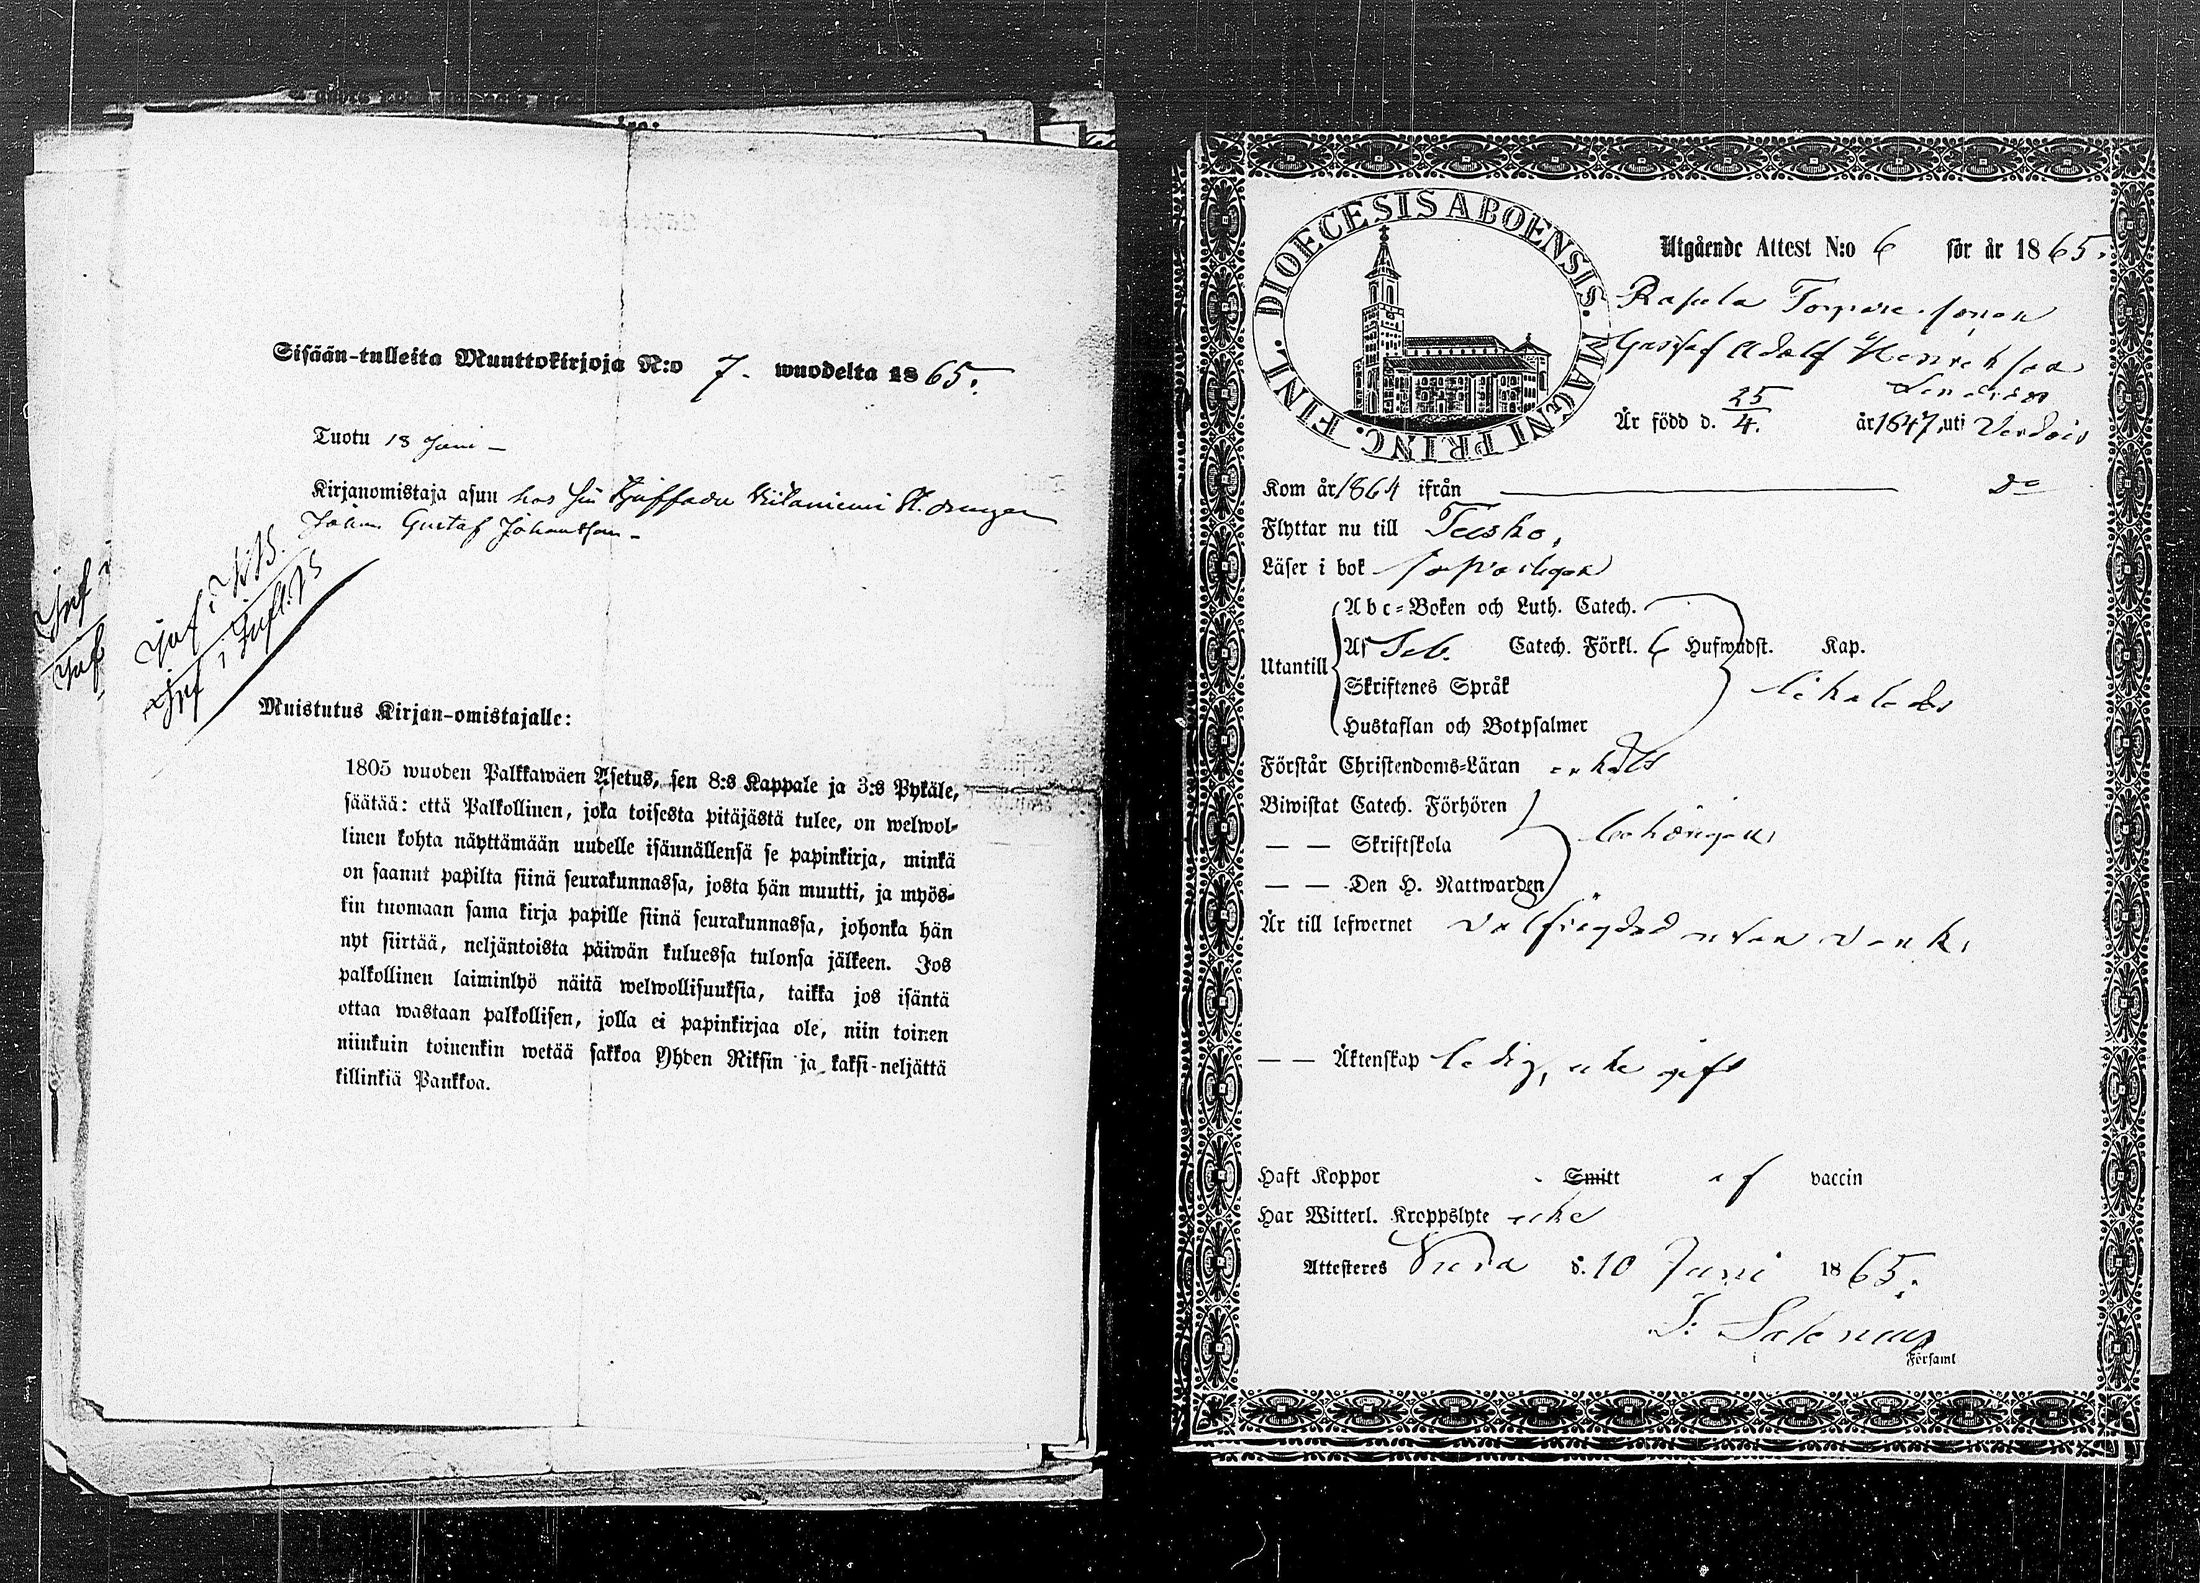 Sisään-tulleita Muuttokirjoja N:o 7. wuodelta 1865.
Tuotu 18 Juni
Kirjanomistaja asuu hos sin
Johan Gustaf Johansson
Inf i
Inf
Inf i
Inf i
Muistutus Kirjan-omistajalle:
1805 wuoden Palkkawäen Asetus, sen 8:s Kappale ja 3:s Pykäle,
säätää: että Palkollinen, joka toisesta pitäjästä tulee, on welwol-
linen kohta näyttämään uudelle isännällensä se papinkirja, minkä
on saanut papilta siinä seurakunnassa, josta hän muutti, ja myös-
kin tuomaan sama kirja papille siinä seurakunnassa, johonka hän
nyt siirtää, neljäntoista päiwän kuluessa tulonsa jälkeen. Jos
palkollinen laiminlyö näitä welwollisuuksia, taikka jos isäntä
ottaa wastaan palkollisen, jolla ei papinkirjaa ole, niin toinen
niinkuin toinenkin wetää sakkoa Yhden Riksin ja kaksi-neljättä
killinkiä Pankkoa.
DIOECESIS ABOENSIS. MAGNI PRINC. FINL.
Utgående Attest N:o 6 för år 1865.
Torpare sonen
Gustaf Adolf Henriksson
Är född d. 25/4. år 1847 uti
Kom år 1864 ifrån do
Flyttar nu till Teisko,
Läser i bok
Utantill
Abc-Boken och Luth. Catech.
Af Seb. Catech. Förkl. 6 Hufwudst. Kap.
Skriftenes Språk likaledes
Hustaflan och Botpsalmer
Förstår Christendoms-Läran enkelt
Biwistat Catech. Förhören
— — Skriftskola behörigen
— — Den H. Nattwarden
Är till lefwernet välfrejdad utan
— — Äktenskap ledig, icke gift
Haft Koppor Smitt af vaccin
Har Witterl. Kroppslyte icke
Attesteres d. 10 Juni 1865.
i Församl